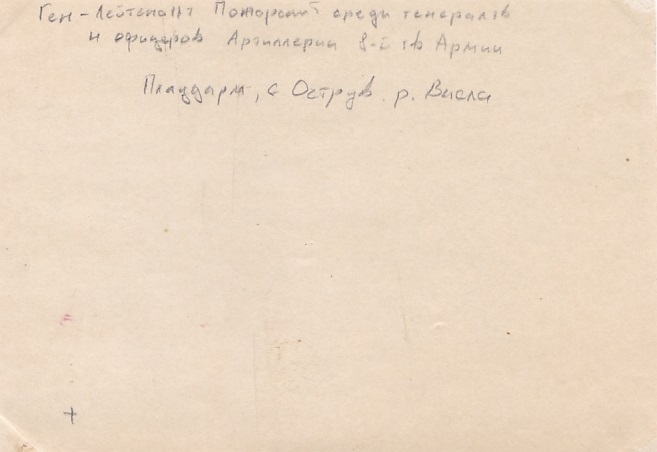 Ген-Лейтенант Пожарский среди генералов
и офицеров Артиллерии 8-й гв Армии
Плацдарм, с Острув. р. Висла
+